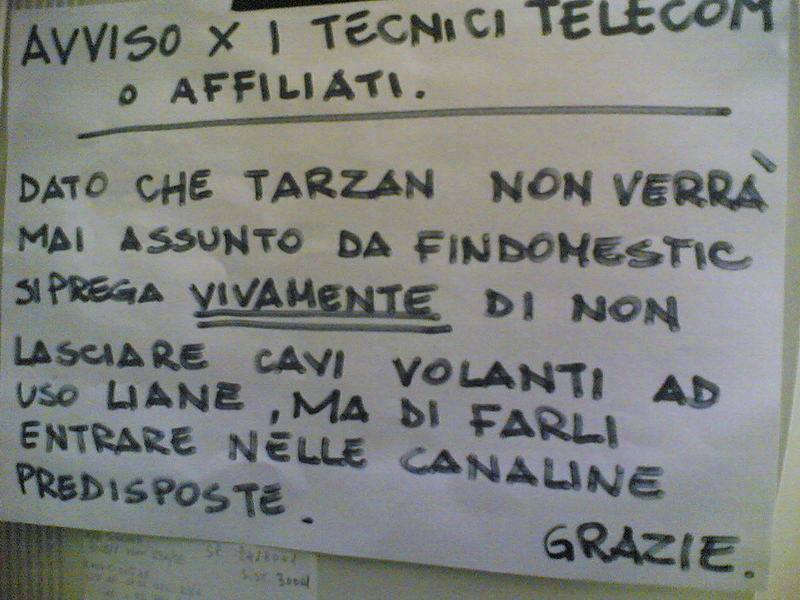 AVVISO X I TECNICI TELECOM
O AFFILIATI.
DATO CHE TARZAN NON VERRÀ
MAI ASSUNTO DA FINDOMESTIC
SI PREGA VIVAMENTE DI NON
LASCIARE CAVI VOLANTI AD
USO LIANE, MA DI FARLI
ENTRARE NELLE CANALINE
PREDISPOSTE.
GRAZIE.